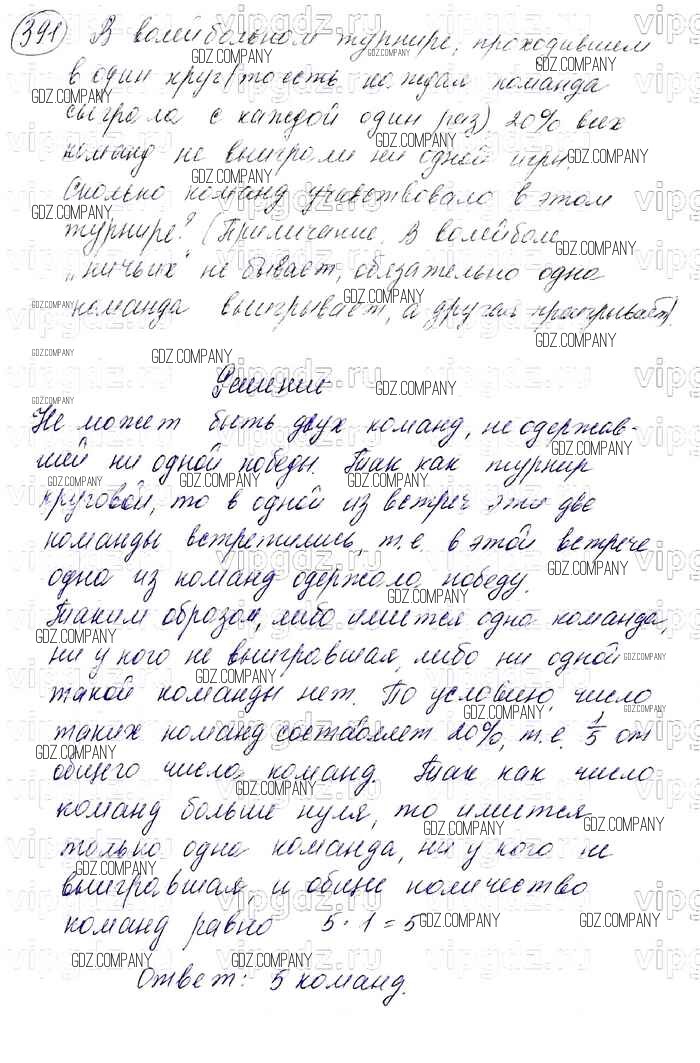 391 В волейбольном турнире, проходившем
в один круг (то есть каждая команда
сыграла с каждой один раз) 20% всех
команд не выиграли ни одной игры.
Сколько команд участвовало в этом
турнире? (Примечание. В волейболе
„ничьих“ не бывает, обязательно одна
команда выигрывает, а другая проигрывает).
Решение
Не может быть двух команд, не одержав-
шей ни одной победы. Так как турнир
круговой, то в одной из встреч эти две
команды встретились, т.е. в этой встрече
одна из команд одержала победу.
Таким образом, либо имеется одна команда,
ни у кого не выигравшая, либо ни одной
такой команды нет. По условию, число
таких команд составляет 20%, т.е. 1/5 от
общего числа команд. Так как число
команд больше нуля, то имеется
только одна команда, ни у кого не
выигравшая, и общее количество
команд равно 5 · 1 = 5
Ответ: 5 команд.